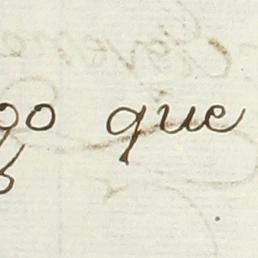 go que